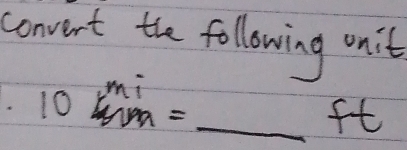 Convert the following unit
. 10 mi = ____ ft